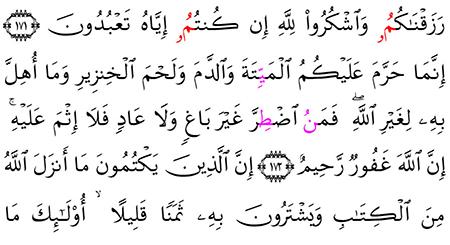 رَزَقْنَٰكُمُۥ وَٱشْكُرُواْ لِلَّهِ إِن كُنتُمُۥ إِيَّاهُ تَعْبُدُونَ ١٧١
إِنَّمَا حَرَّمَ عَلَيْكُمُ ٱلْمَيِّتَةَ وَٱلدَّمَ وَلَحْمَ ٱلْخِنزِيرِ وَمَا أُهِلَّ
بِهِۦ لِغَيْرِ ٱللَّهِۖ فَمَنُ ٱضْطِرَّ غَيْرَ بَاغٍ وَلَا عَادٍ فَلَا إِثْمَ عَلَيْهِۚ
إِنَّ ٱللَّهَ غَفُورٌ رَّحِيمٌ ١٧٢ إِنَّ ٱلَّذِينَ يَكْتُمُونَ مَا أَنزَلَ ٱللَّهُ
مِنَ ٱلْكِتَٰبِ وَيَشْتَرُونَ بِهِۦ ثَمَنًا قَلِيلًا ۙ أُوْلَٰئِكَ مَا